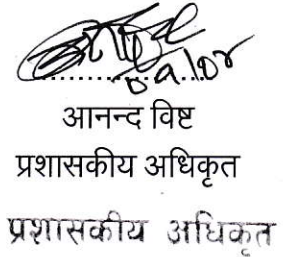 आनन्द विष्ट
प्रशासकीय अधिकृत
प्रशासकीय अधिकृत